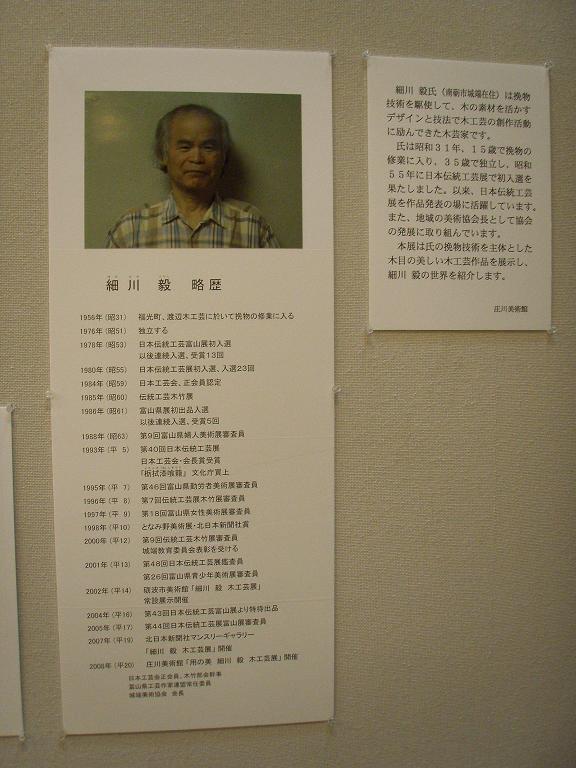 細川 毅 略歴
1956年(昭31) 福光町、渡辺木工芸に於いて挽物の修業に入る
1976年(昭51) 独立する
1978年(昭53) 日本伝統工芸富山展初入選
以後連続入選、受賞13回
1980年(昭55) 日本伝統工芸展初入選、入選23回
1984年(昭59) 日本工芸会、正会員認定
1985年(昭60) 伝統工芸木竹展
1986年(昭61) 富山県展初出品入選
以後連続入選、受賞5回
1988年(昭63) 第9回富山県婦人美術展審査員
1993年(平 5) 第40回日本伝統工芸展
日本工芸会・会長賞受賞
「栃拭漆喰籠」 文化庁買上
1995年(平 7) 第46回富山県勤労者美術展審査員
1996年(平 8) 第7回伝統工芸展木竹展審査員
1997年(平 9) 第18回富山県女性美術展審査員
1998年(平10) となみ野美術展・北日本新聞社賞
2000年(平12) 第9回伝統工芸木竹展審査員
城端教育委員会表彰を受ける
2001年(平13) 第48回日本伝統工芸展鑑査員
第26回富山県青少年美術展審査員
2002年(平14) 砺波市美術館「細川 毅 木工芸展」
常設展示開催
2004年(平16) 第43回日本伝統工芸富山展より特待出品
2005年(平17) 第44回日本伝統工芸展富山展審査員
2007年(平19) 北日本新聞社マンスリーギャラリー
「細川 毅 木工芸展」開催
2008年(平20) 庄川美術館「用の美 細川 毅 木工芸展」開催
日本工芸会正会員、木竹部会幹事
富山県工芸作家連盟常任委員
城端美術協会 会長
細川 毅氏(南砺市城端在住)は挽物
技術を駆使して、木の素材を活かす
デザインと技法で木工芸の創作活動
に励んできた木芸家です。
氏は昭和31年、15歳で挽物の
修業に入り、35歳で独立し、昭和
55年に日本伝統工芸展で初入選を
果たしました。以来、日本伝統工芸
展を作品発表の場に活躍しています。
また、地域の美術協会長として協会
の発展に取り組んでいます。
本展は氏の挽物技術を主体とした
木目の美しい木工芸作品を展示し、
細川 毅の世界を紹介します。
庄川美術館